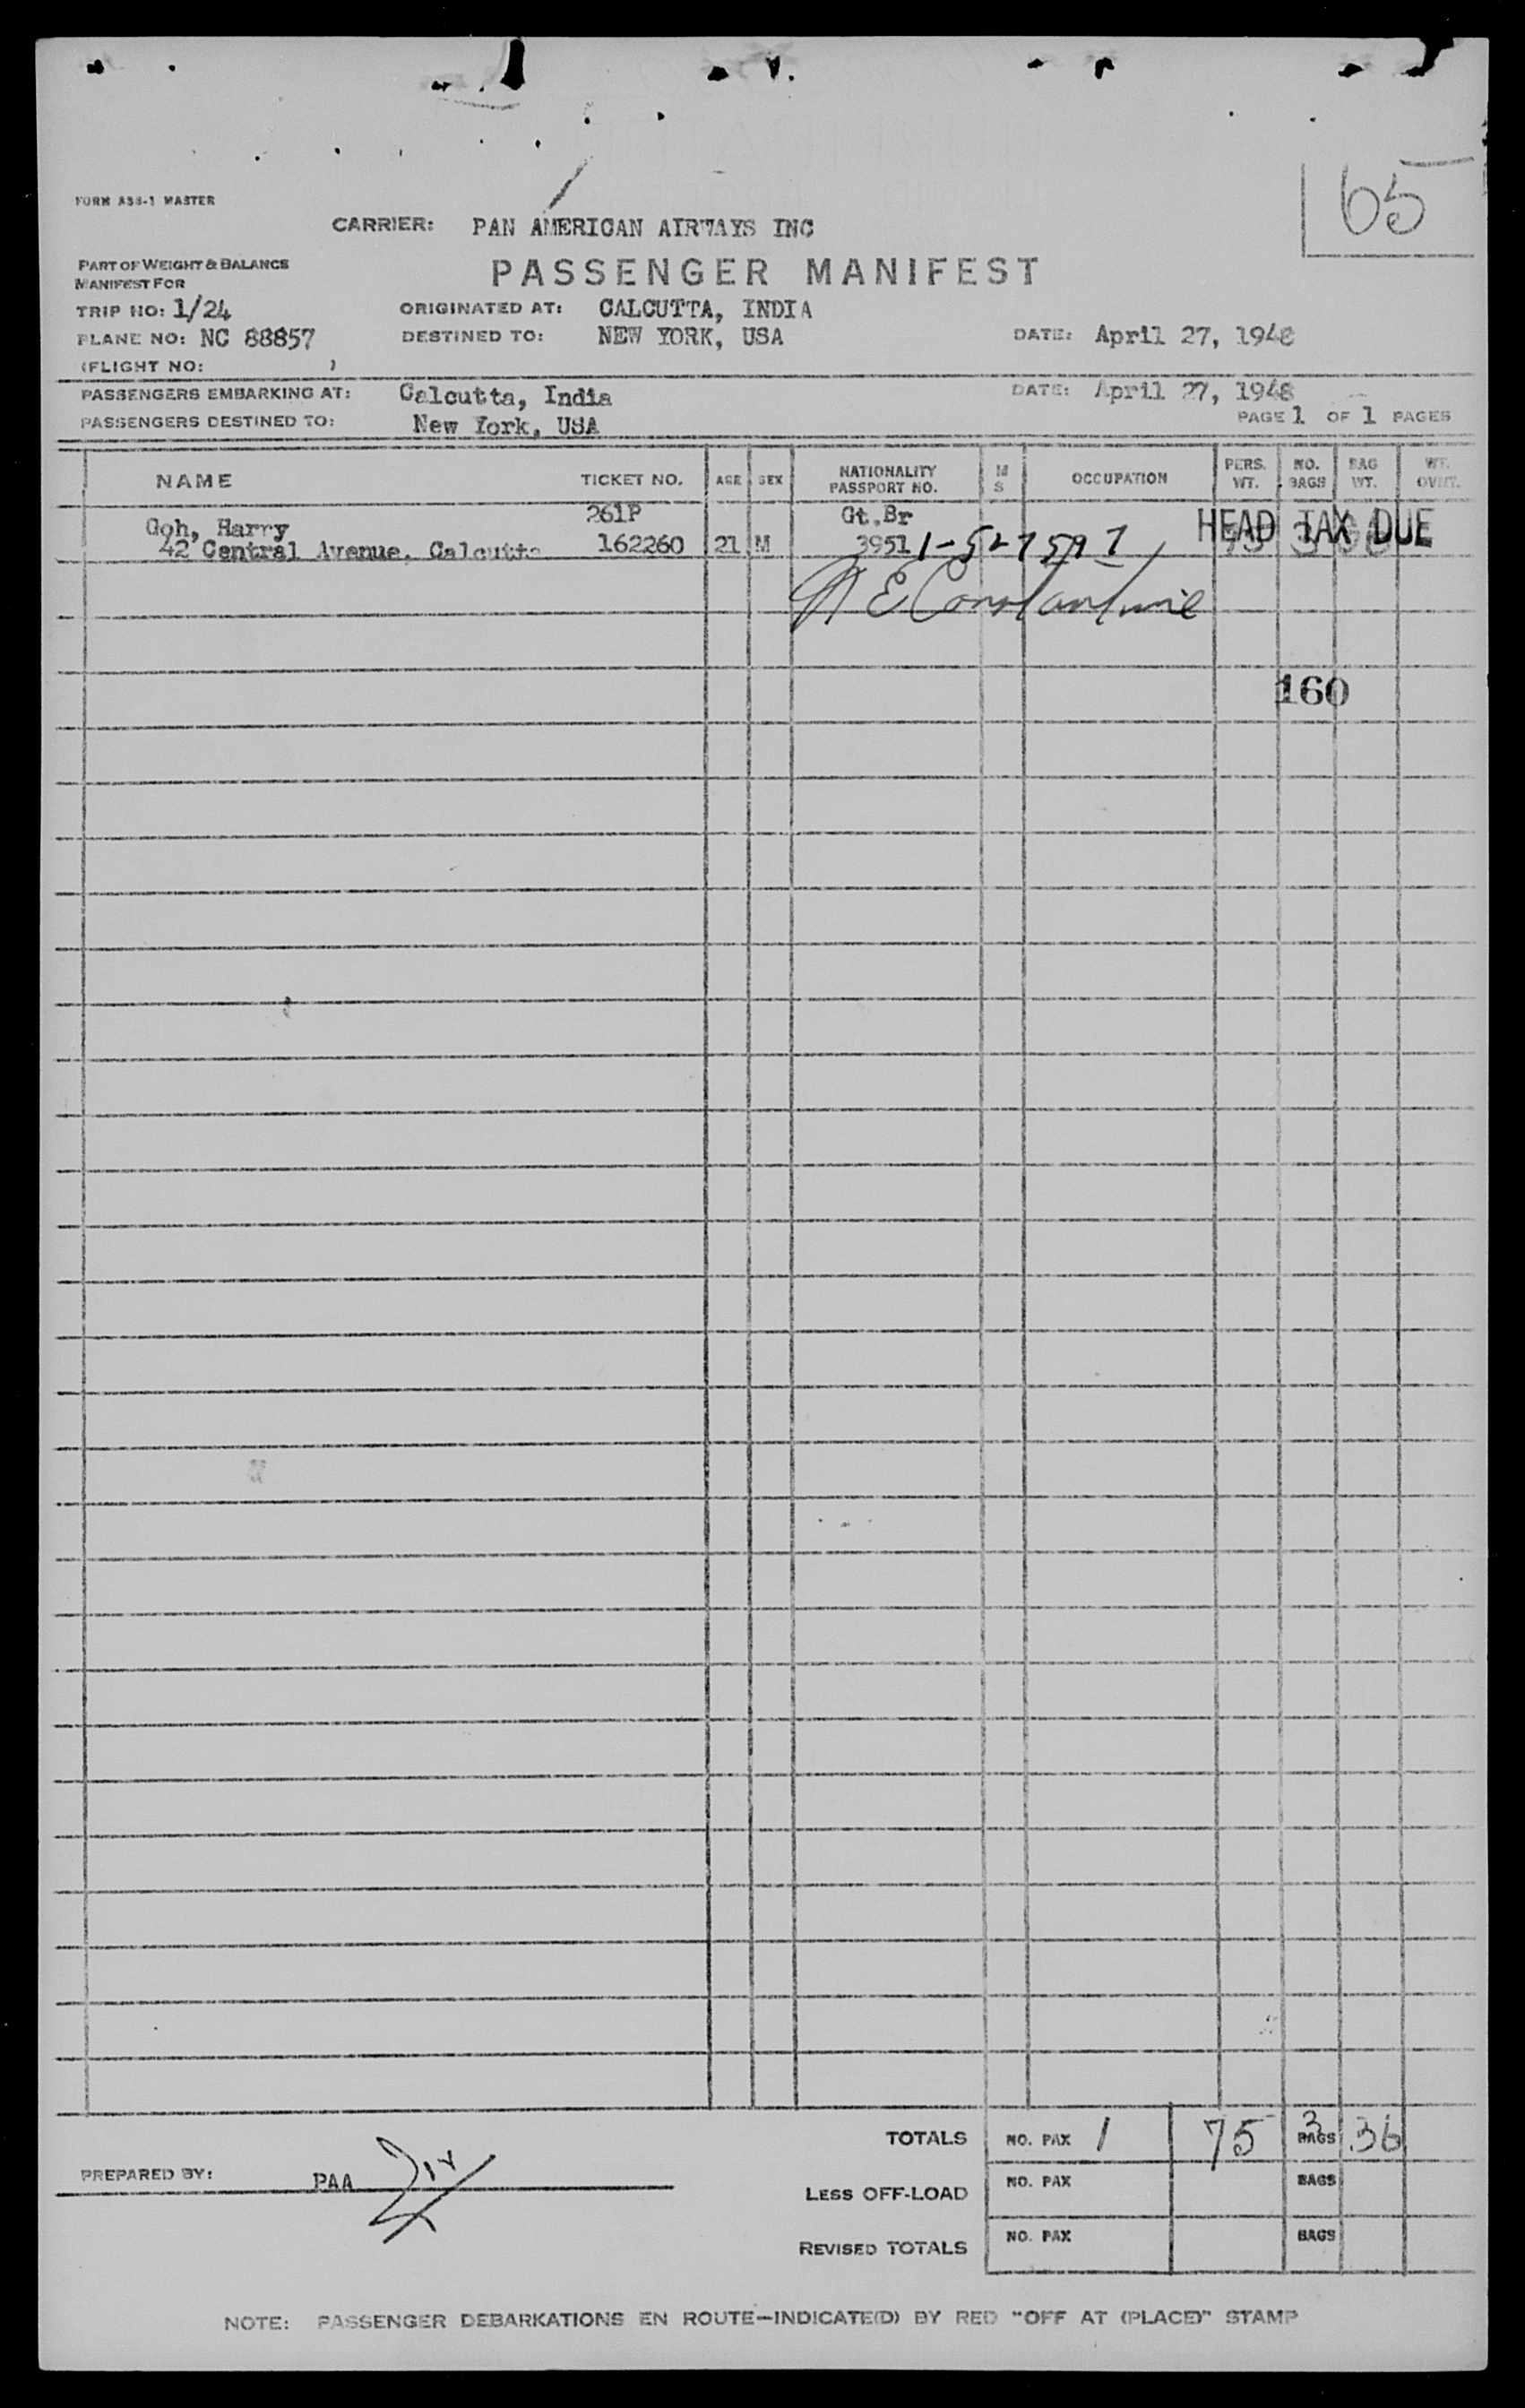 65
FORM ASS-1 MASTER
CARRIER: PAN AMERICAN AIRWAYS INC
PART OF WEIGHT & BALANCE
MANIFEST FOR
PASSENGER MANIFEST
TRIP NO: 1/24 ORIGINATED AT: CALCUTTA, INDIA
PLANE NO: NC 88857 DESTINED TO: NEW YORK, USA DATE: April 27, 1948
(FLIGHT NO: )
PASSENGERS EMBARKING AT: Calcutta, India DATE: April 27, 1948
PASSENGERS DESTINED TO: New York, USA PAGE 1 OF 1 PAGES
NAME TICKET NO. AGE SEX NATIONALITY PASSPORT NO. M S OCCUPATION PERS. WT. NO. BAGS BAG WT. WT. OVWT.
261P Gt.Br
Goh, Harry HEAD TAX DUE
42 Central Avenue, Calcutta 162260 21 M 3951
E Constantine
160
TOTALS NO. PAX 1 75 3 BAGS 36
PREPARED BY: PAA
LESS OFF-LOAD NO. PAX BAGS
REVISED TOTALS NO. PAX BAGS
NOTE: PASSENGER DEBARKATIONS EN ROUTE—INDICATE(D) BY RED "OFF AT (PLACE)" STAMP